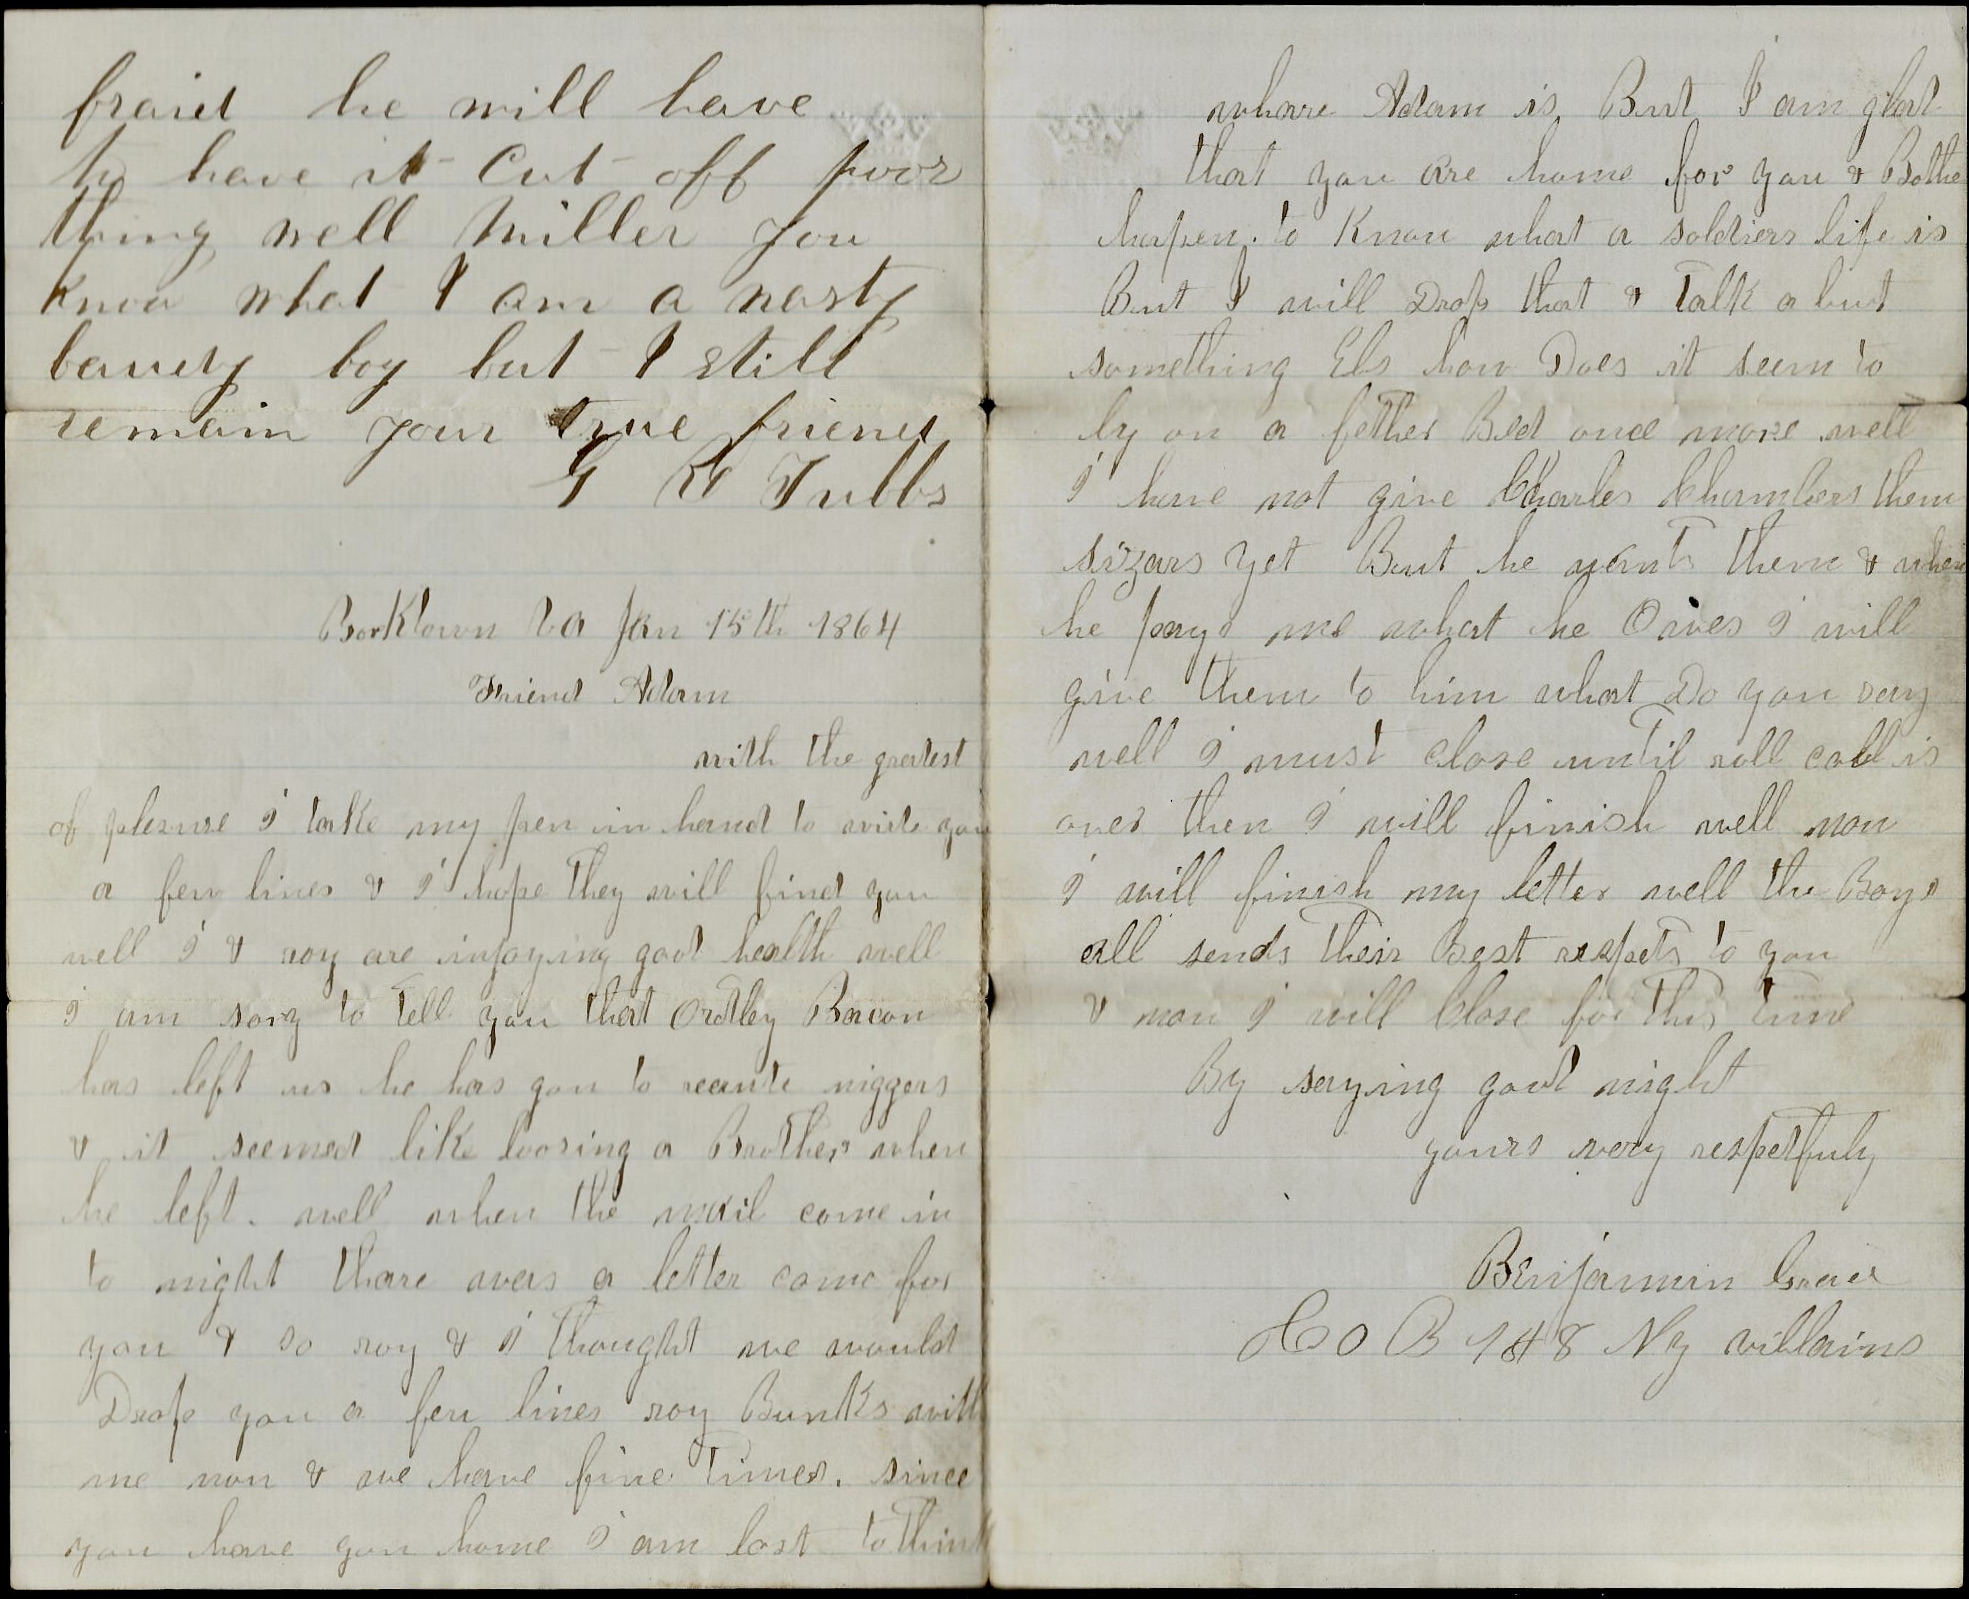 fraid he will have
to have it Cut off poor
thing well Miller you
know what I am a nasty
bawdy boy but I still
remain your true friend
G W Tubbs
Yorktown Va Jan 15th 1864
Friend Adam
with the gratest
of plesure I take my pen in hand to write you
a few lines & I hope they will find you
well I & roy are injoying good health well
I am sory to tell you that Ortley Bacon
has left us he has gon to recrute niggers
& it seemed like loosing a Brother when
he left. well when the mail come in
to night thare was a letter come for
you & so roy & I thought we would
Drop you a few lines roy Bunks with
me now & we have fine times. since
you have gon home I am lost to think
whare Adam is But I am glad
that you are home for you & Bothe
hapen to Know what a soldiers life is
But I will Drop that & Talk a but
something Els how Does it seem to
ly on a fether Bed once more well
I have not give Charles Chambers them
sizars yet But he wants them & when
he pays me what he Owes I will
give them to him what Do you say
well I must close until roll call is
over then I will finish well now
I will finish my letter well the Boys
all sends their Best respets to you
& now I will Close for this time
By saying good night
yours very respetfuly
Benjamin
CO B 148 Ny villains